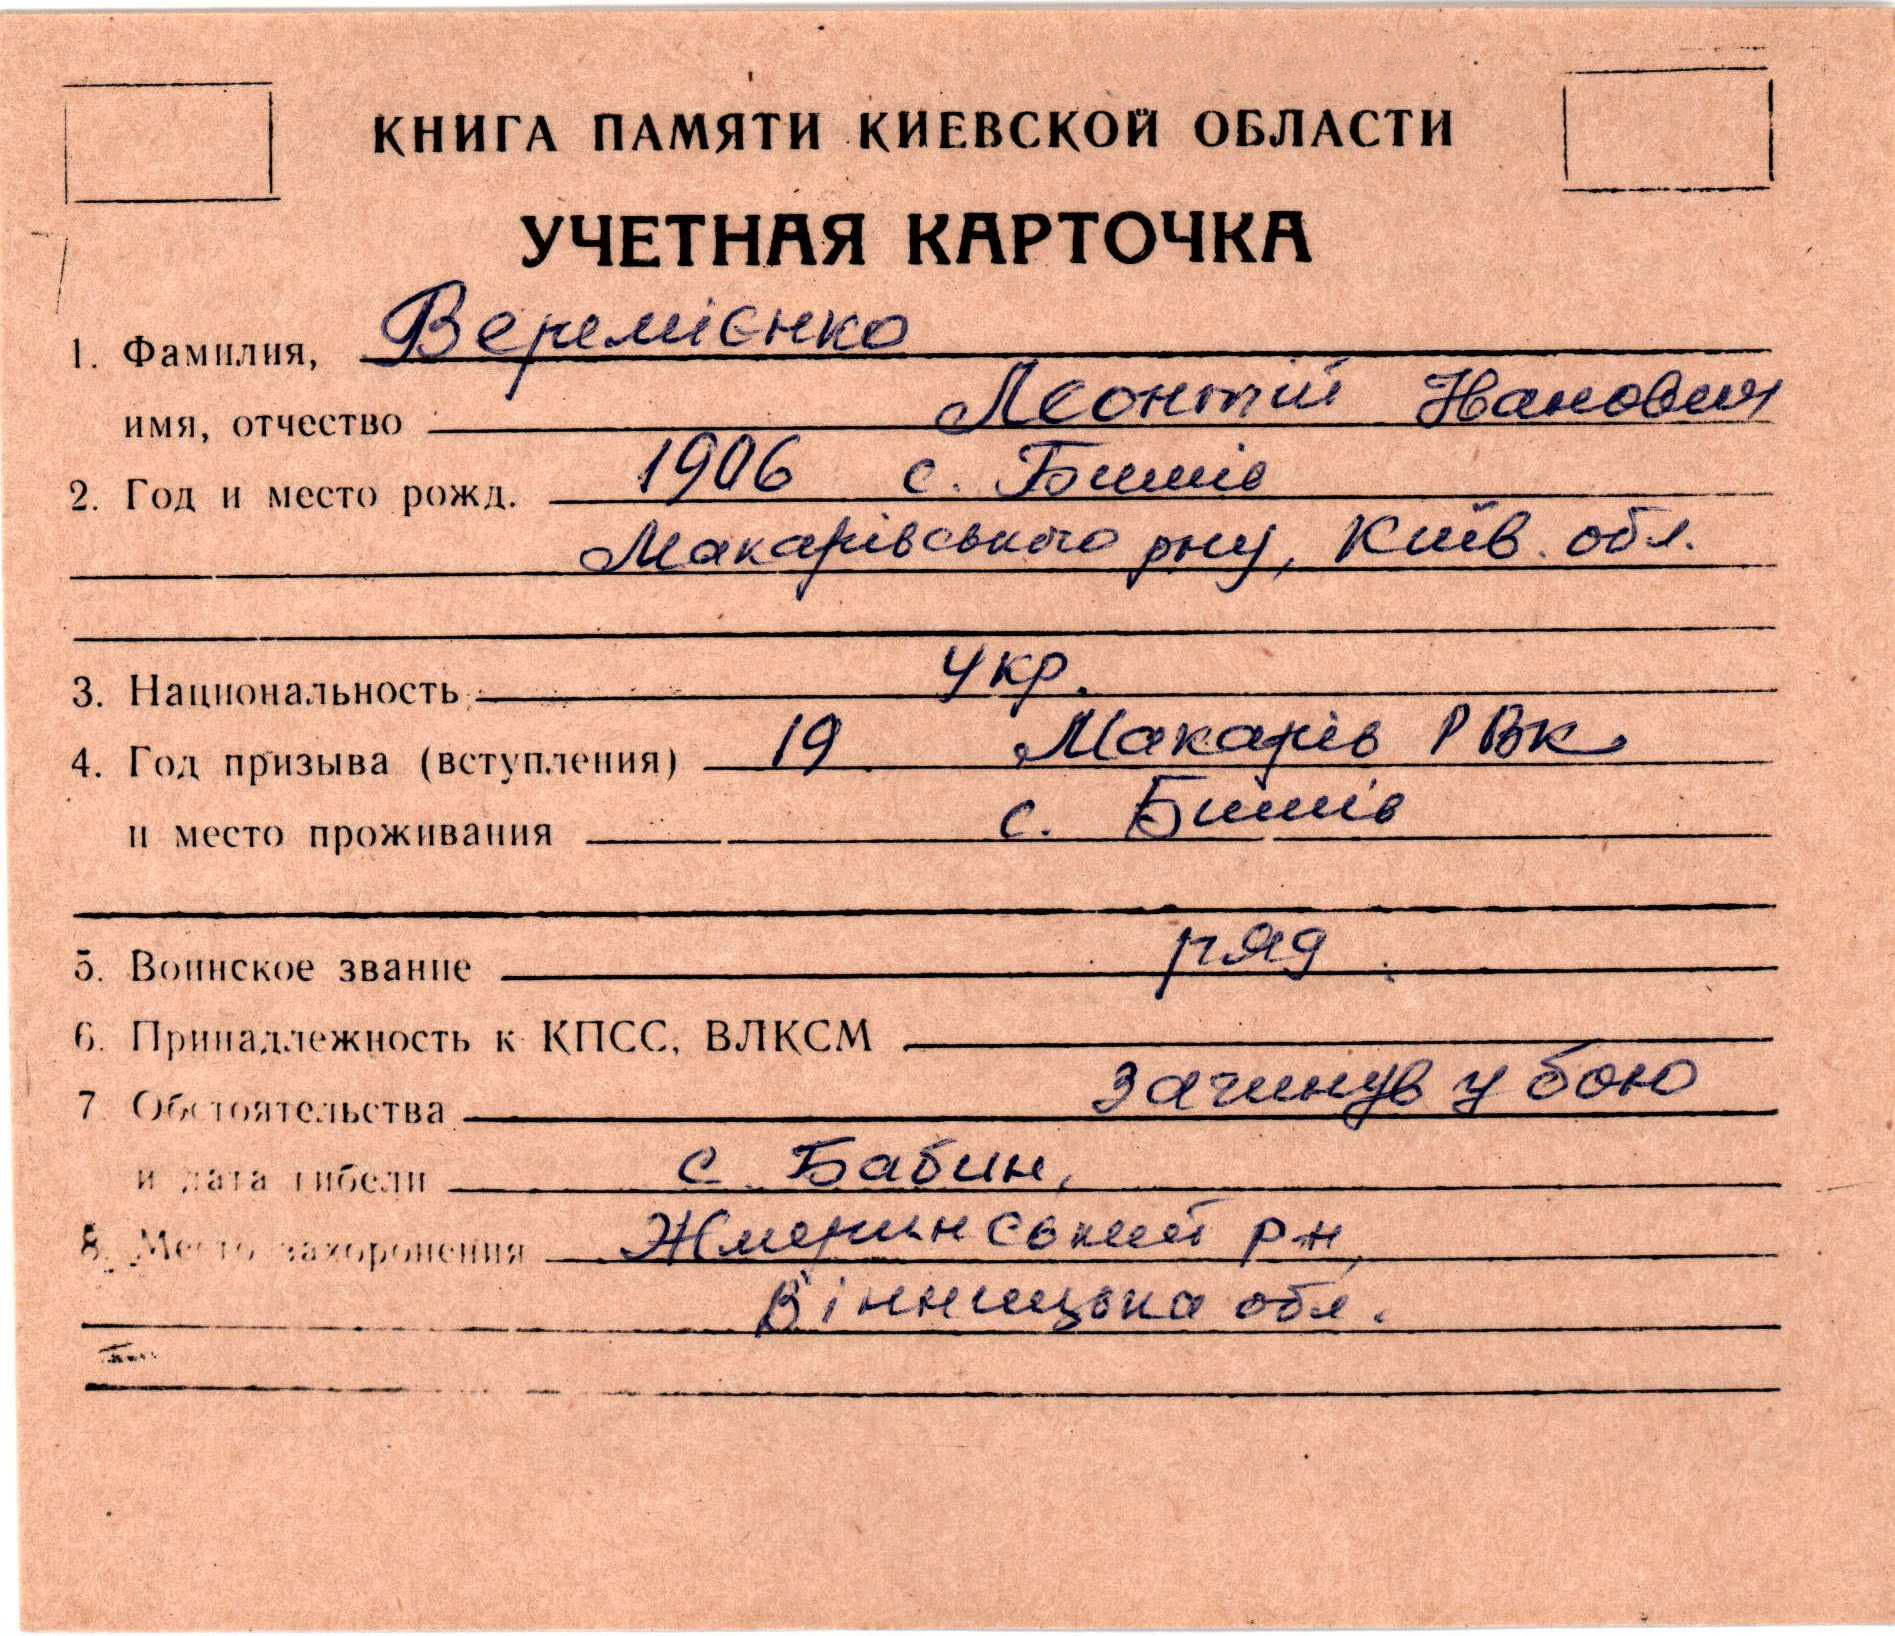 КНИГА ПАМЯТИ КИЕВСКОЙ ОБЛАСТИ
УЧЕТНАЯ КАРТОЧКА
1. Фамилия, Веремієнко
имя, отчество Леонтій Іванович
2. Год и место рожд. 1906 с. Бишів
Макарівського рну, Київ. обл.
3. Национальность Укр.
4. Год призыва (вступления) 19 Макарів РВК
и место проживания с. Бишів
5. Воинское звание ряд.
6. Принадлежность к КПСС, ВЛКСМ
7. Обстоятельства загинув у бою
и дата гибели с. Бабин,
8. Место захоронения Жмеринський р-н,
Вінницька обл.